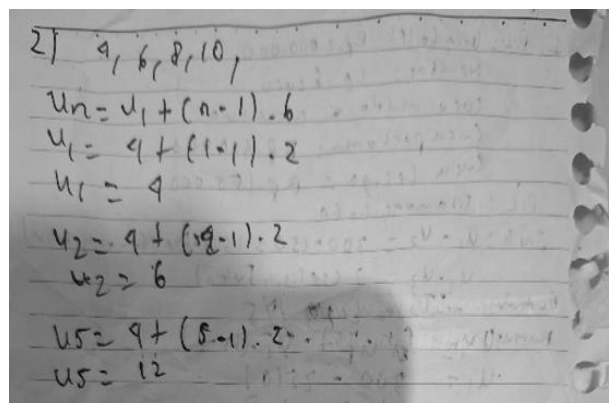 2) 4, 6, 8, 10,
Un = U1 + (n-1) . 6
U1 = 4 + (1-1) . 2
U1 = 4
U2 = 4 + (2-1) . 2
U2 = 6
U5 = 4 + (5-1) . 2
U5 = 12